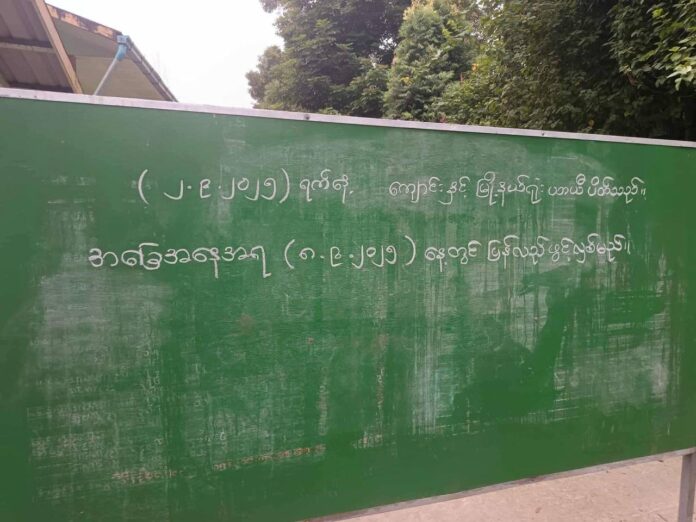 ( ၂.၉.၂၀၂၅ ) ရက်နေ့ ကျောင်းနှင့် မြို့နယ်ရုံး ယာယီ ပိတ်သည်။
အခြေအနေအရ ( ၈.၉.၂၀၂၅ ) နေ့တွင် ပြန်လည်ဖွင့်လှစ်မည်။